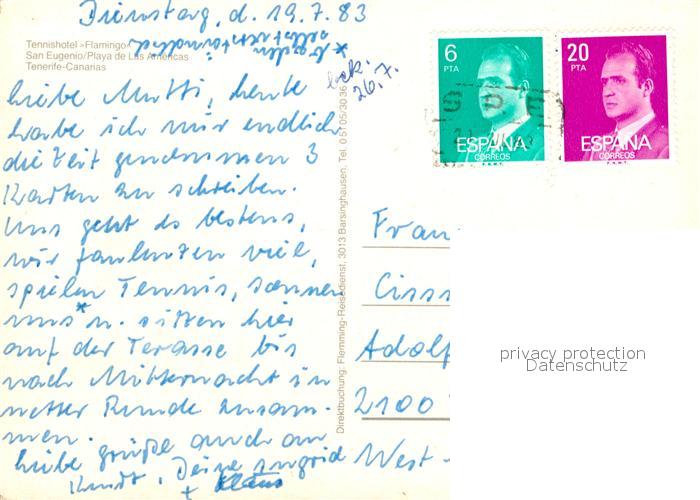 Dienstag, d. 19.7.83
Tennishotel »Flamingo«
San Eugenio/Playa de Las Americas
Tenerife-Canarias
* baden
selbstverständlich
bek.
26.7.
liebe Mutti, heute
habe ich mir endlich
die Zeit genommen 3
Karten zu schreiben.
Uns geht es bestens,
wir faulenzen viel,
spielen Tennis, sonnen
uns* u. sitzen hier
auf der Terasse bis
nach Mitternacht in
netter Runde zusam-
men.
liebe Grüße auch an
Kurdt. Deine Ingrid
+ Klaus
Direktbuchung: Flemming-Reisedienst, 3013 Barsinghausen, Tel. 05105/3036
6
PTA
ESPAÑA
CORREOS
F.N.M.T.
20
PTA
ESPAÑA
CORREOS
F.N.M.T.
Frau
Ciss
Adolf
2100
West-
privacy protection
Datenschutz